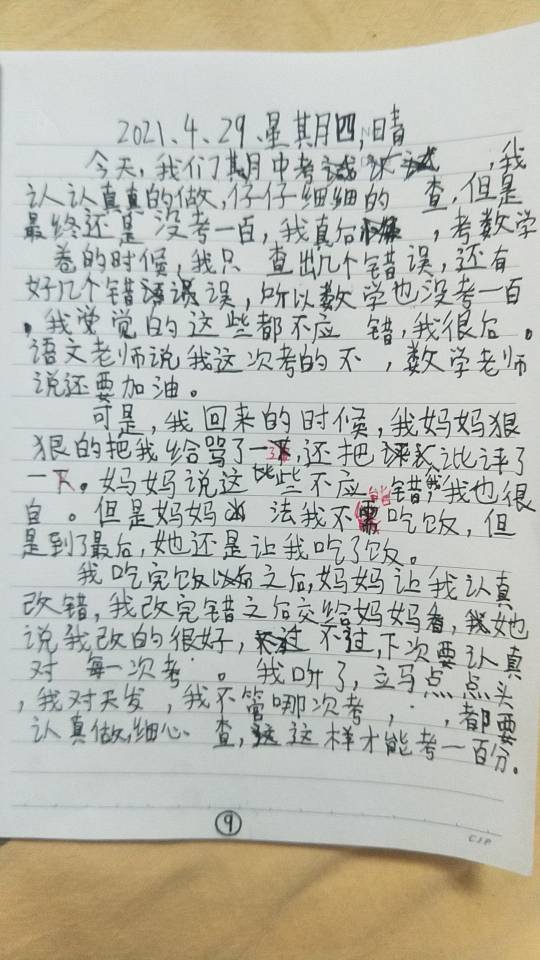 2021、4、29、星期四,晴
今天,我们了期月中考试 ,我
认认真真的做,仔仔细细的 查,但是
最终还是没考一百,我真后 ,考数学
卷的时候,我只 查出几个错误,还有
好几个错误,所以数学也没考一百
。我觉的这些都不应 错,我很后 。
语文老师说我这次考的不 ,数学老师
说还要加油。
可是,我回来的时候,我妈妈狠
狠的把我给骂了一下,还把 比评了
一下。妈妈说这些不应 能错,我也很
自 。但是妈妈 法我不 吃饭,但
是到了最后,她还是让我吃了饭。
我吃完饭之后,妈妈让我认真
改错,我改完错之后交给妈妈看,她
说我改的很好,不过,下次要认真
对 每一次考 。我听了,立马点点头
,我对天发 ,我不管哪次考 , ,都要
认真做,细心 查,这样才能考一百分。
9